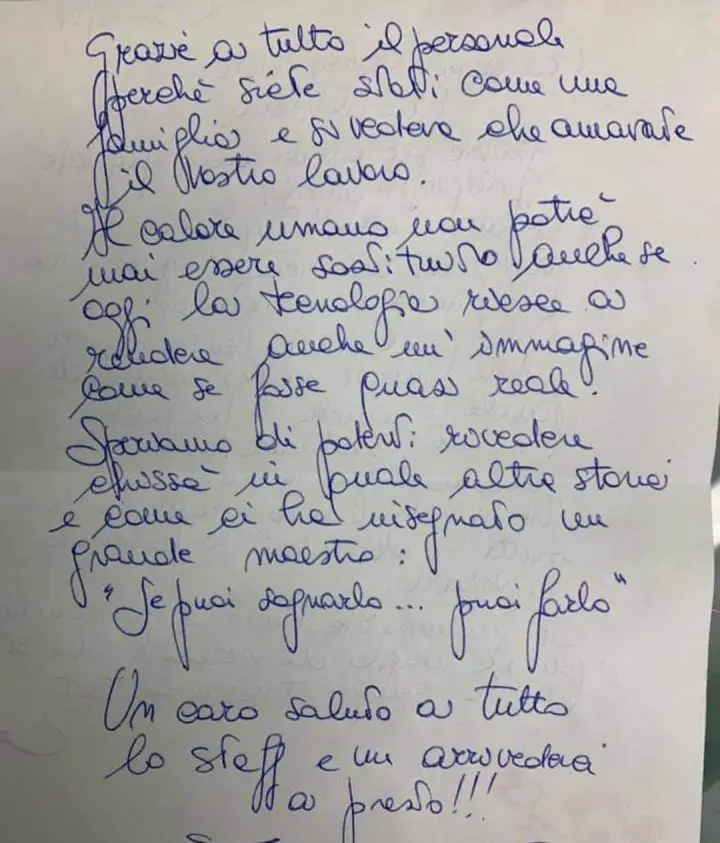 Grazie a tutto il personale
perchè siete stati come una
famiglia e si vedeva che amavate
il vostro lavoro.
Il calore umano non potrà
mai essere sostituito anche se
oggi la tecnologia riesce a
rendere anche un' immagine
come se fosse quasi reale.
Speriamo di potervi rivedere
chissà in quale altra storia
e come ci ha insegnato un
grande maestro:
"Se puoi sognarlo... puoi farlo"
Un caro saluto a tutto
lo staff e un arrivederci
a presto!!!